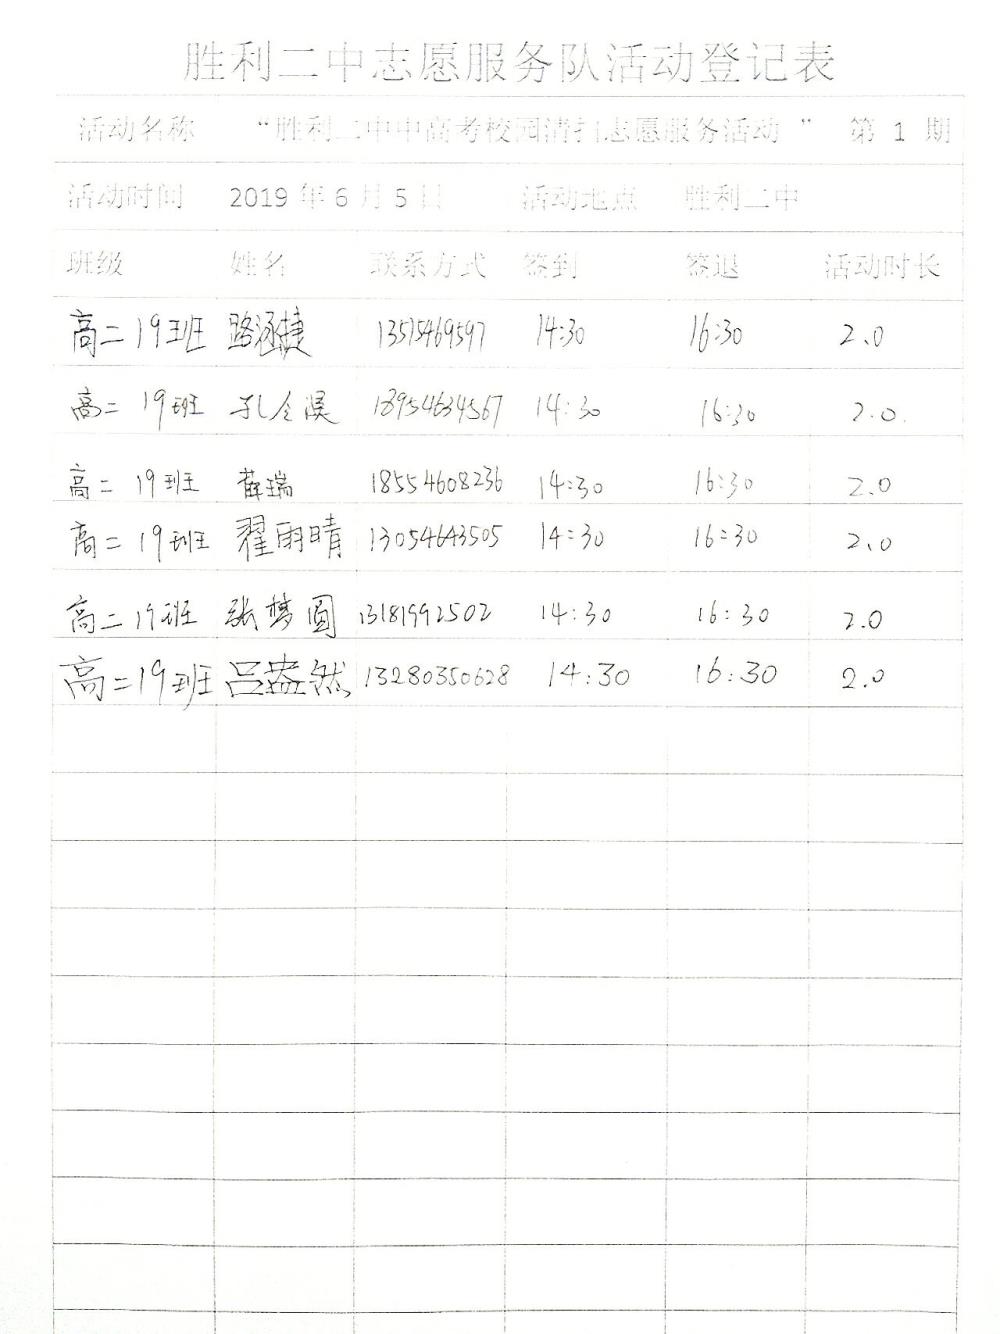 胜利二中志愿服务队活动登记表
活动名称 “胜利二中中高考校园清扫志愿服务活动 ” 第 1 期
活动时间 2019 年 6 月 5 日 活动地点 胜利二中
班级 姓名 联系方式 签到 签退 活动时长
高二19班 路涵捷 13515469597 14:30 16:30 2.0
高二 19班 孔令淏 18954634567 14:30 16:30 2.0.
高二 19班 薛瑞 18554608236 14:30 16:30 2.0
高二 19班 翟雨晴 13054643505 14:30 16:30 2.0
高二19班 张梦圆 13181992502 14:30 16:30 2.0
高二19班 吕盎然 13280350628 14:30 16:30 2.0